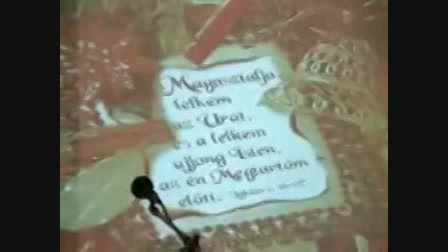 Magasztalja
lelkem
az Urat,
s a lelkem
ujjong Isten,
az én Megtartóm
előtt.